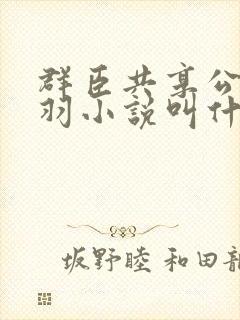 群臣共享公
羽小説叫什
坂野睦 和田龍